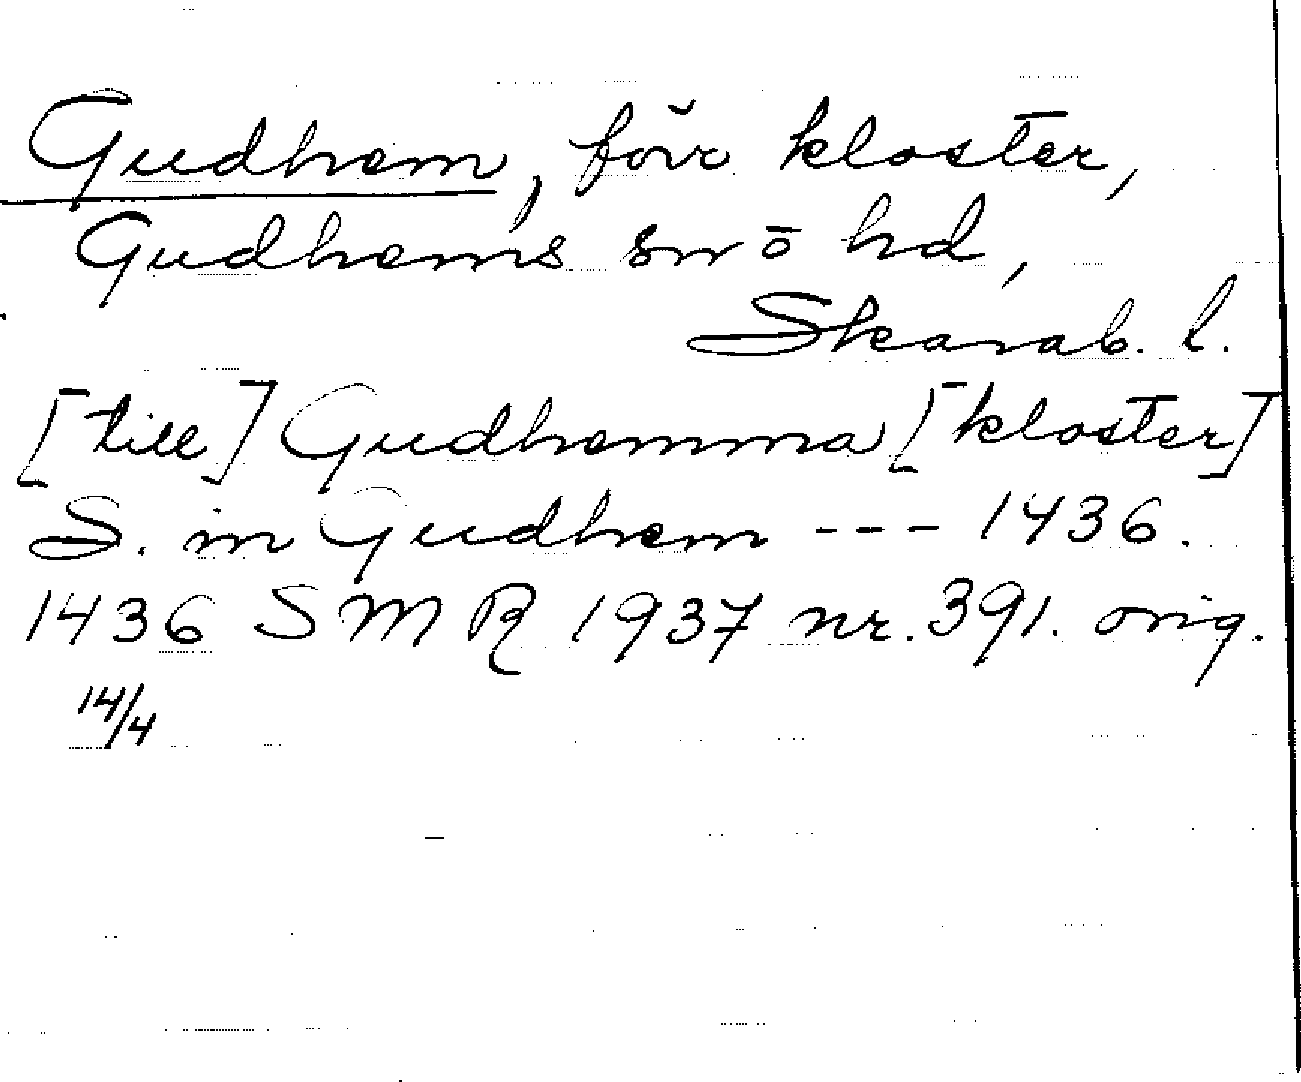 Gudhem, förr kloster,
Gudhems sn o hd,
Skarab. l.
[till] Gudhemma [kloster]
S. in Gudhem --- 1436.
1436 SMR 1937 nr. 391. orig.
14/4